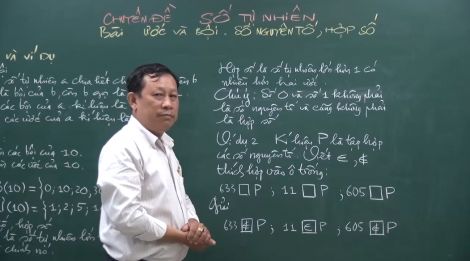 CHUYÊN ĐỀ SỐ TỰ NHIÊN
Bài ƯỚC VÀ BỘI. SỐ NGUYÊN TỐ, HỢP SỐ
VÀ VÍ DỤ
số tự nhiên a chia hết cho
là bội của b, còn b gọi là
các bội của a kí hiệu là
các ước của a kí hiệu
các bội của 10.
các ước của 10.
(10) = {0; 10; 20; 30
(10) = {1; 2; 5; 1
tố, hợp số
là số tự nhiên lớn
chính nó.
Hợp số là số tự nhiên lớn hơn 1 có
nhiều hơn hai ước.
Chú ý: Số 0 và số 1 không phải
là số nguyên tố và cũng không phải
là hợp số
Ví dụ 2 Kí hiệu P là tập hợp
các số nguyên tố. Viết ∈, ∉
thích hợp vào ô trống:
633 □ P ; 11 □ P ; 605 □ P
Giải
633 ∉ P ; 11 ∈ P ; 605 ∉ P